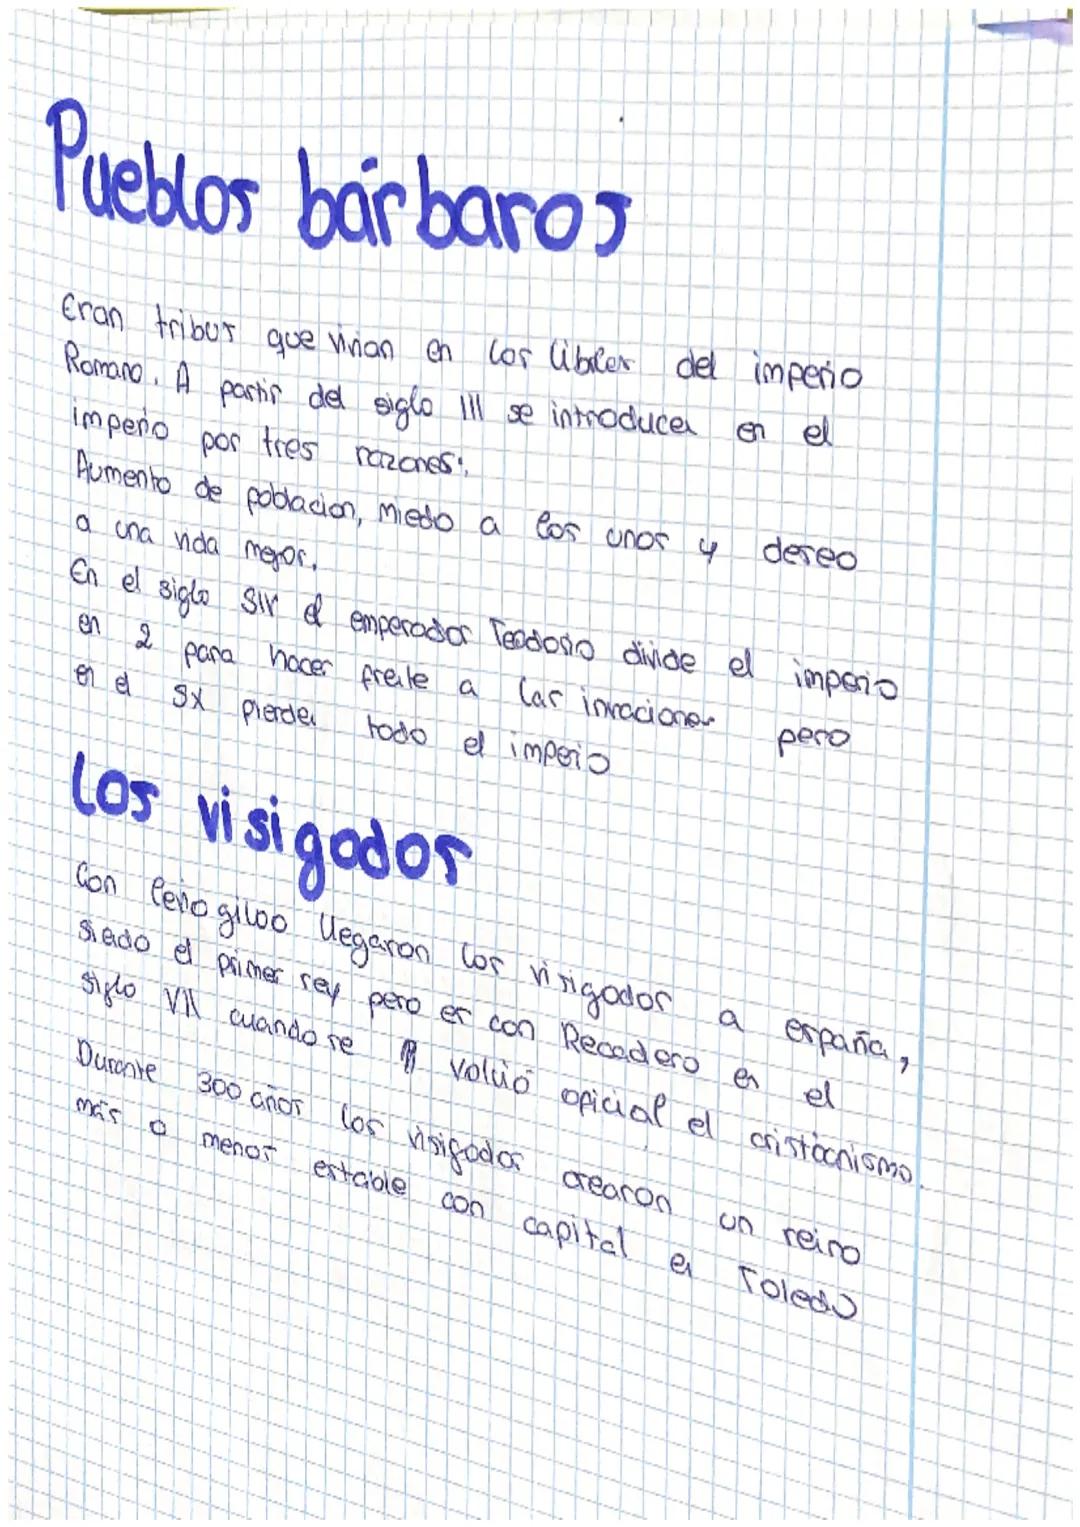 Pueblos bárbaros
Eran tribus que vivian en los libiles del imperio
Romano. A partir del siglo III se introducen en el
imperio por tres razones:
Aumento de poblacion, miedo a los unos y deseo
a una vida mejor.
En el siglo SIV el emperador Teodosio divide el imperio
en 2 para hacer frente a las invaciones pero
en el SX pierden todo el imperio
Los visigodos
Con Leviogiloo llegaron los visigodos a españa,
siendo el primer rey pero es con Recadero en el
siglo VII cuando se volvió oficial el cristianismo.
Durante 300 años los visigodos crearon un reino
más o menos estable con capital en Toledo